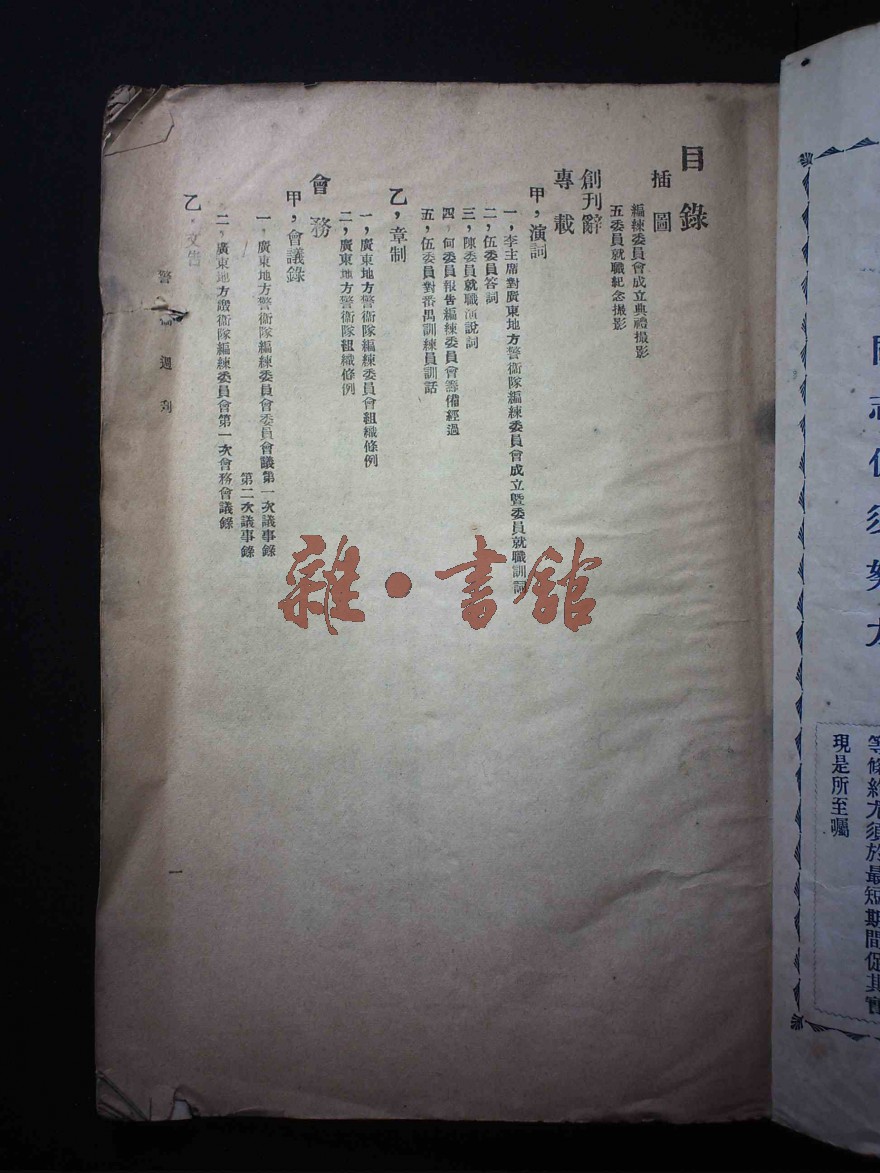 目錄
插圖
編練委員會成立典禮攝影
五委員就職紀念攝影
創刊辭
專載
甲，演詞
一，李主席對廣東地方警衞隊編練委員會成立暨委員就職訓詞
二，伍委員答詞
三，陳委員就職演說詞
四，何委員報告編練委員會籌備經過
五，伍委員對番禺訓練員訓話
乙，章制
一，廣東地方警衞隊編練委員會組織條例
二，廣東地方警衞隊組織條例
會務
甲，會議錄
一，廣東地方警衞隊編練委員會委員會議第一次議事錄
第二次議事錄
二，廣東地方警衞隊編練委員會第一次會務會議錄
乙，文告
警 週刋
一
雜·書館
等條約尤須於最短期間促其實
現是所至囑